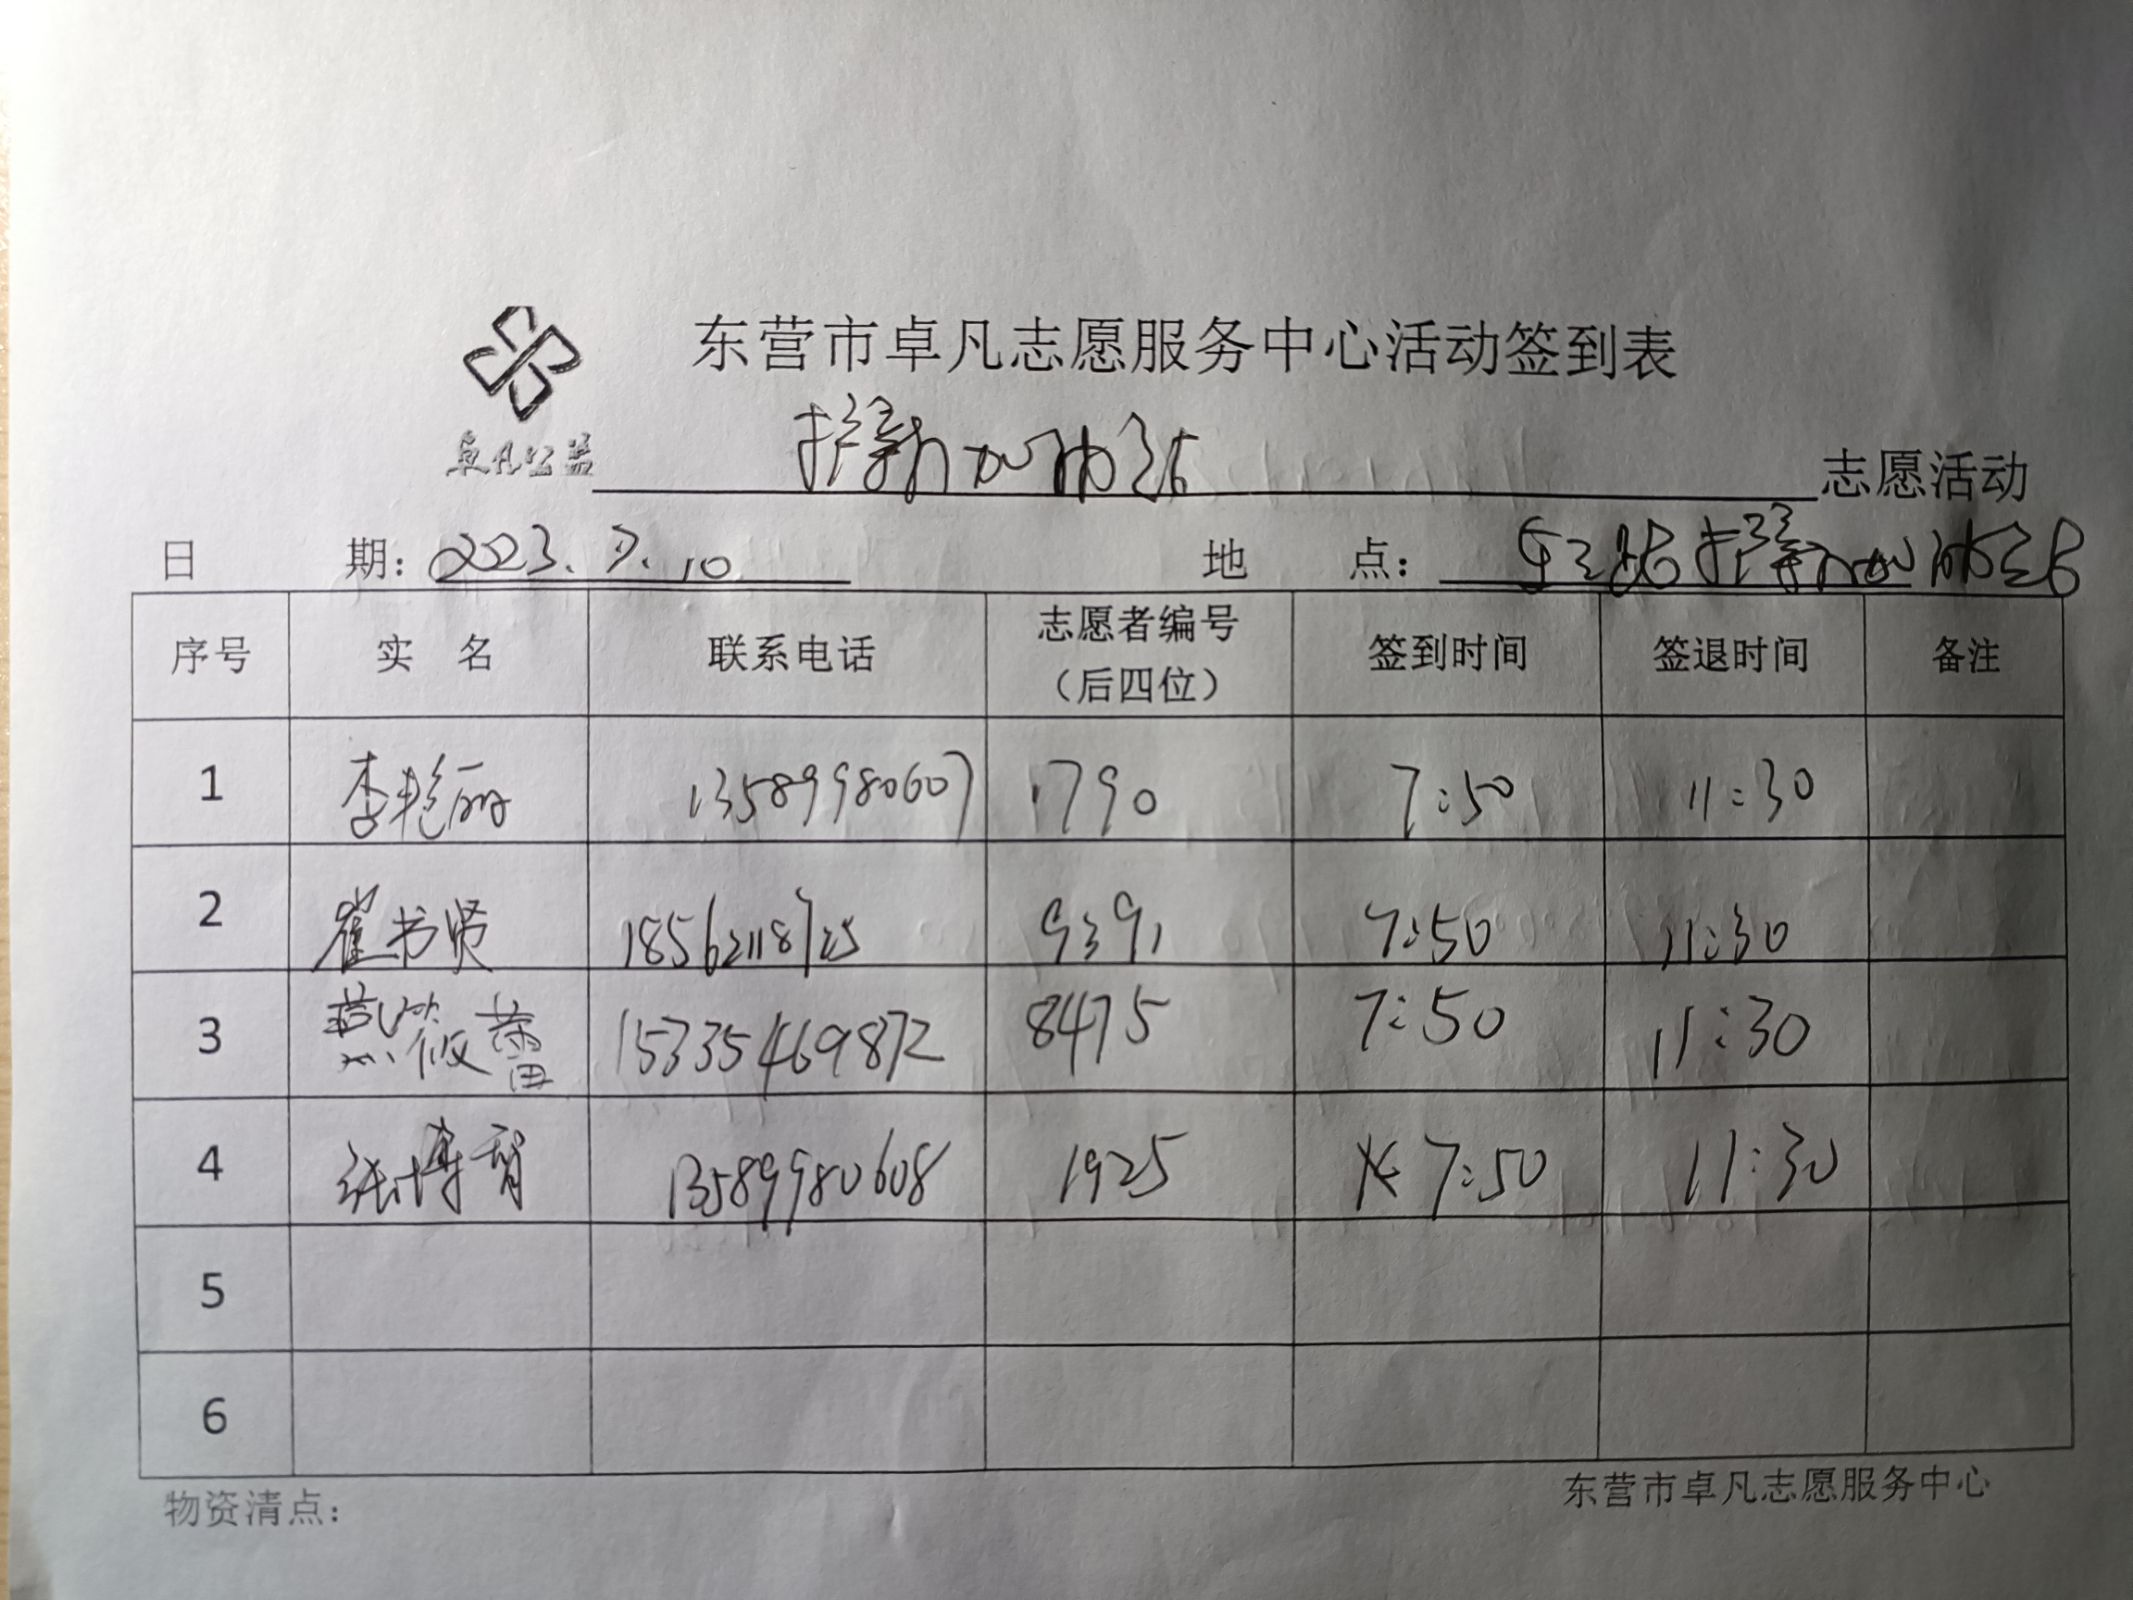 东营市卓凡志愿服务中心活动签到表
卓凡公益
加油站 志愿活动
日期：2023.7.10 地点： 加油站
序号 实名 联系电话 志愿者编号（后四位） 签到时间 签退时间 备注
1 李艳丽 13589980607 1790 7:50 11:30
2 崔书贤 18562118725 9391 7:50 11:30
3 燕筱蕾 15335469872 8475 7:50 11:30
4 张博 13589980608 1925 7:50 11:30
5
6
物资清点：
东营市卓凡志愿服务中心